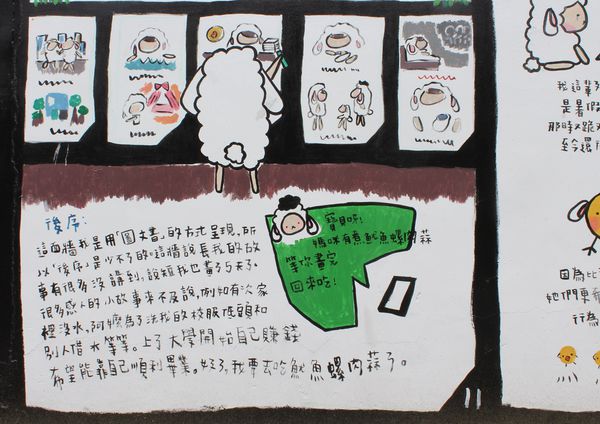 後序:
這面牆我是用「圖文書」的方式呈現,所
以「後序」是少不了的。這牆說長我的故
事有很多沒講到,說短我也畫了5天了。
很多感人的小故事來不及說,例如有次家
裡沒水,阿嬤為了洗我的校服低頭和
別人借水等等。上了大學開始自己賺錢
希望能靠自己順利畢業。好了,我要去吃魷魚螺肉蒜了。
寶貝呀!
媽咪有煮魷魚螺肉蒜
等妳畫完
回來吃!
11
我這輩
是暑假
那時又
至今還
因為比
她們更
行為